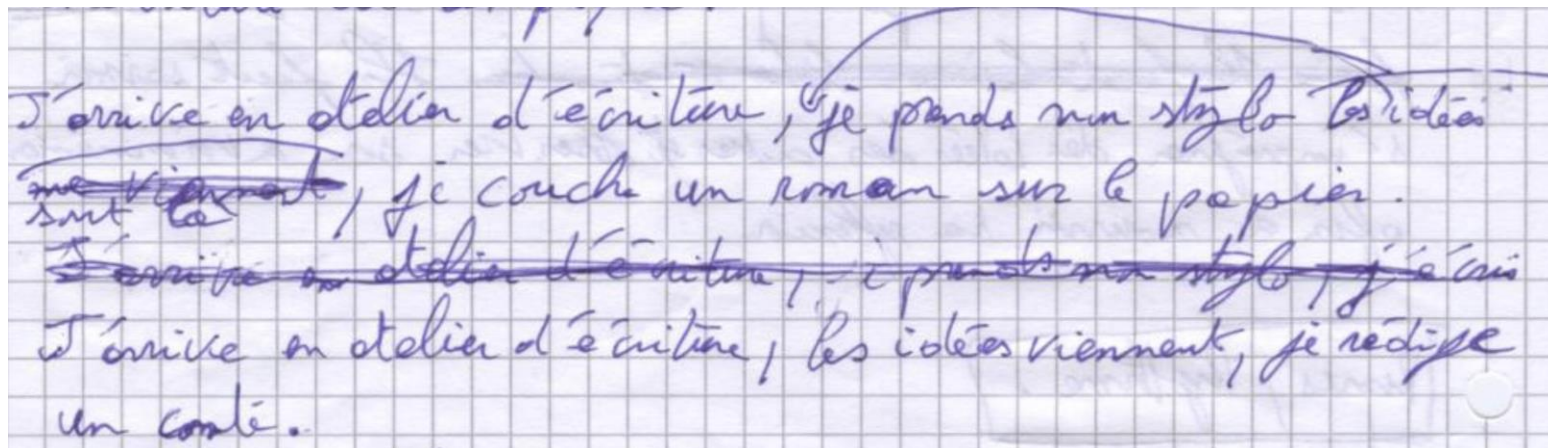 J'arrive en atelier d'écriture, je prends mon stylo les idées
me viennent, je couche un roman sur le papier.
sont là
J'arrive en atelier d'écriture, je prends mon stylo, j'écris
J'arrive en atelier d'écriture, les idées viennent, je rédige
un conte.